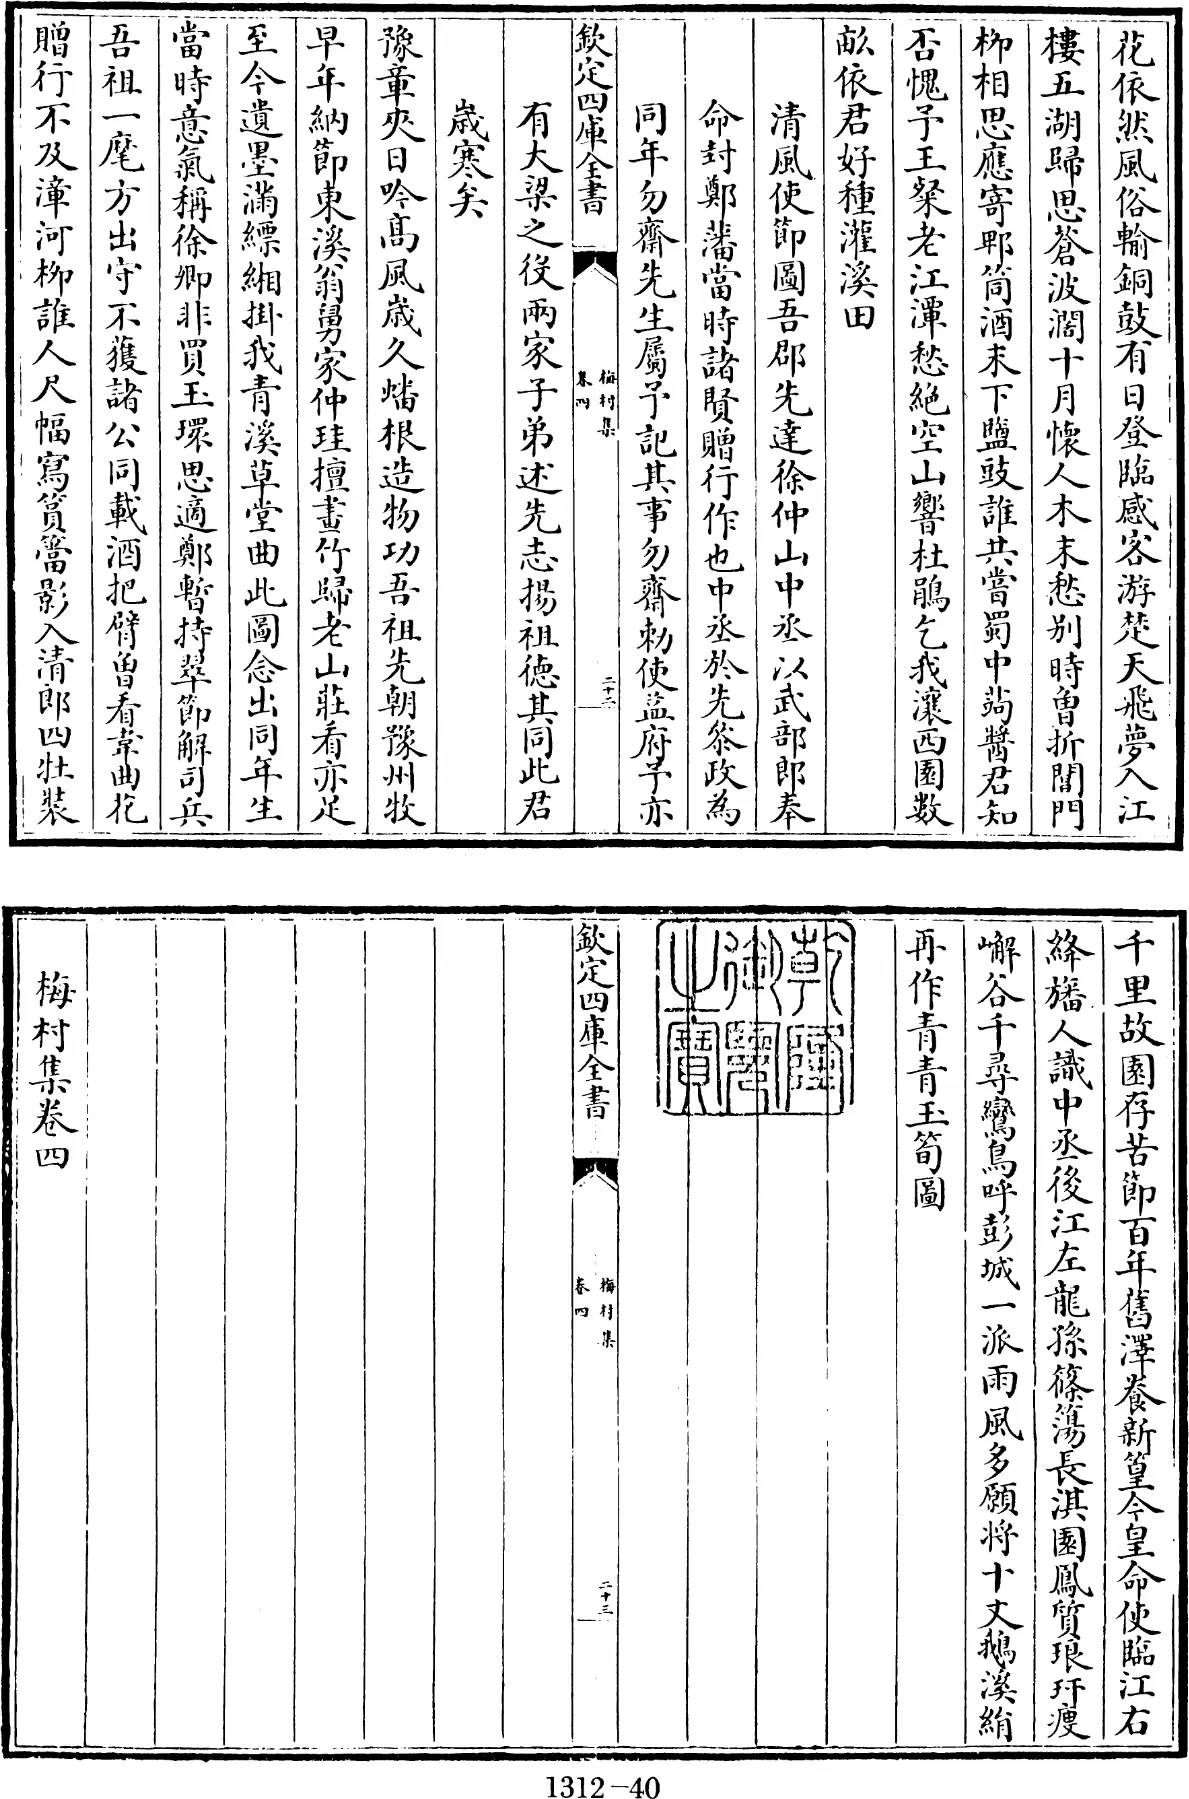 花依然風俗輸銅鼓有日登臨感客游楚天飛夢入江
樓五湖歸思蒼波濶十月懷人木末愁别時曽折閶門
栁相思應寄郫筒酒末下鹽豉誰共嘗蜀中蒟醬君知
否愧予王粲老江潭愁絶空山響杜鵑乞我瀼西園數
畝依君好種灌溪田
清風使節圖吾郡先達徐仲山中丞以武部郎奉
命封鄭藩當時諸賢贈行作也中丞於先叅政為
同年勿齋先生屬予記其事勿齋勅使益府予亦
欽定四庫全書
梅村集
卷四
二十二
有大梁之役兩家子弟述先志揚祖徳其同此君
嵗寒矣
豫章夾日吟髙風嵗久蟠根造物功吾祖先朝豫州牧
早年納節東溪翁舅家仲珪擅畫竹歸老山莊看亦足
至今遺墨滿縹緗掛我青溪草堂曲此圖念出同年生
當時意氣稱徐卿非買玉環思適鄭暫持翠節解司兵
吾祖一麾方出守不獲諸公同載酒把臂曽看韋曲花
贈行不及漳河栁誰人尺幅寫篔簹影入清郎四牡裝
千里故園存苦節百年舊澤養新篁今皇命使臨江右
絳旛人識中丞後江左龍孫篠簜長淇園鳳質琅玕瘦
嶰谷千尋鸞鳥呼彭城一派雨風多願将十丈鵝溪絹
再作青青玉筍圖
乾隆御覽之寶
欽定四庫全書
梅村集
卷四
二十三
梅村集卷四
1312-40